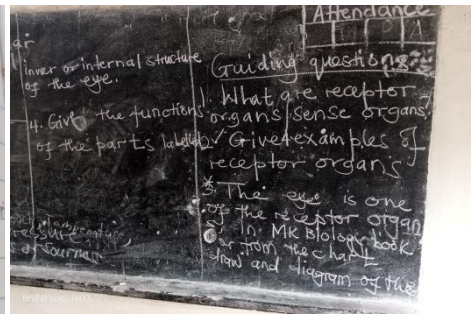 Attendance
inner or internal structure
of the eye.
4. Give the functions
of the parts labelled
Guiding questions
1. What are receptor
organs/sense organs?
2. Give 4 examples of
receptor organs
3. The eye is one
of the receptor organs
In MK Biology book
or from the chart
draw and diagram of the
Infinix HOT